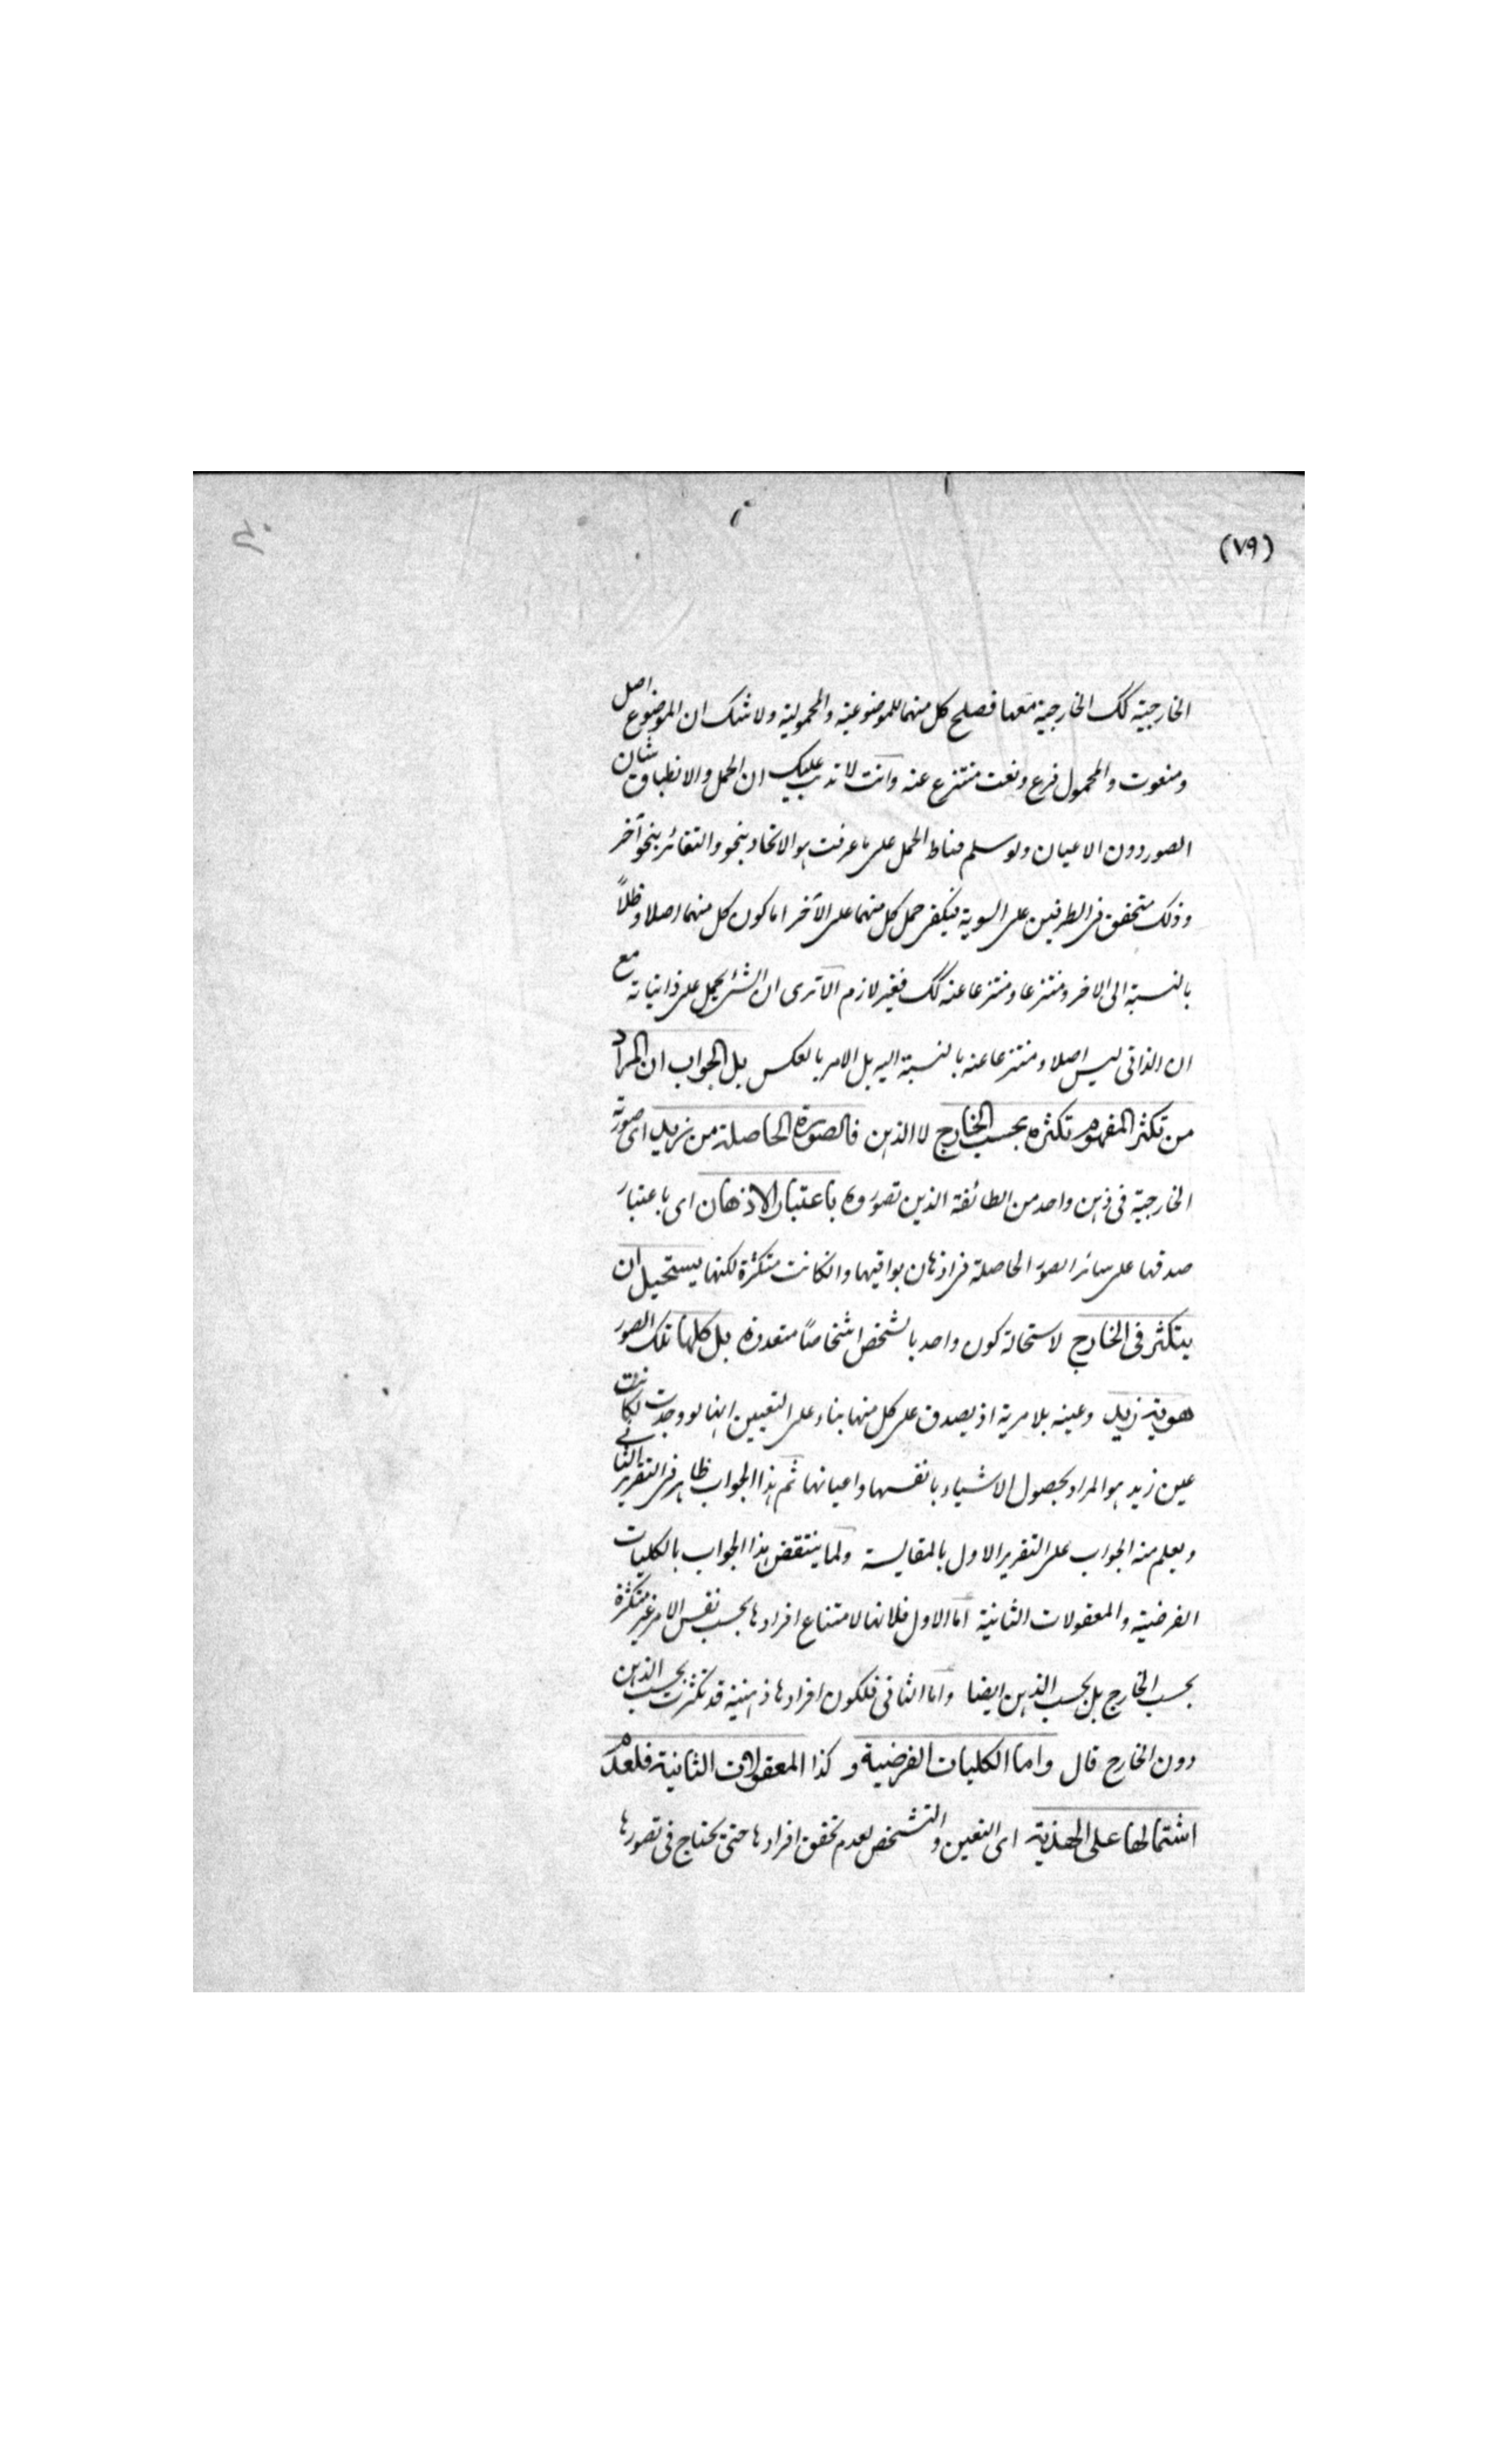 (٧٩)
الخارجية كك الخارجية معها فصلح كل منهما للموضوعية والمحمولية ولا شك ان الموضوع اصل
ومنعوت والمحمول فرع ونعت منتزع عنه وانت لا تذهب عليك ان الحمل والانطباق شان
الصور دون الاعيان ولو سلم فمناط الحمل على ما عرفت هو الاتحاد بنحو والتغائر بنحو آخر
وذلك متحقق فى الطرفين على السوية فيكفى حمل كل منهما على الآخر اما كون كل منهما اصلا وظلاً
بالنسبة الى الاخر ومنتزعا ومنتزعا عنه كك فغير لازم الا ترى ان الشئ يحمل على ذاتياته مع
ان الذاتى ليس اصلا ومنتزعا عنه بالنسبة اليه بل الامر بالعكس بل الجواب ان المراد
من تكثر المفهوم تكثره بحسب الخارج لا الذهن فالصورة الحاصلة من زيد اى صورته
الخارجية فى ذهن واحد من الطائفة الذين تصوروه باعتبار الاذهان اى باعتبار
صدقها على سائر الصور الحاصلة فى اذهان بواقيها وانكانت متكثرة لكنها يستحيل ان
يتكثر فى الخارج لاستحالة كون واحد بالشخص اشخاصًا متعددة بل كلها تلك الصور
هوية زيد وعينه بلا مرية اذ يصدق على كل منها بناء على التعيين انها لو وجدت لكانت
عين زيد هو المراد بحصول الاشياء بانفسها واعيانها ثم هذا الجواب ظاهر فى التقرير الثانى
ويعلم منه الجواب على التقرير الاول بالمقايسة ولما ينتقض هذا الجواب بالكليات
الفرضية والمعقولات الثانية اما الاول فلانها لامتناع افرادها بحسب نفس الامر غير متكثرة
بحسب الخارج بل بحسب الذهن ايضا واما الثانى فلكون افرادها ذهنية قد تكثرت بحسب الذهن
دون الخارج قال واما الكليات الفرضية و كذا المعقولات الثانية فلعدم
اشتمالها على الهذية اى التعين والتشخص لعدم تحقق افرادها حتى يحتاج فى تصورها